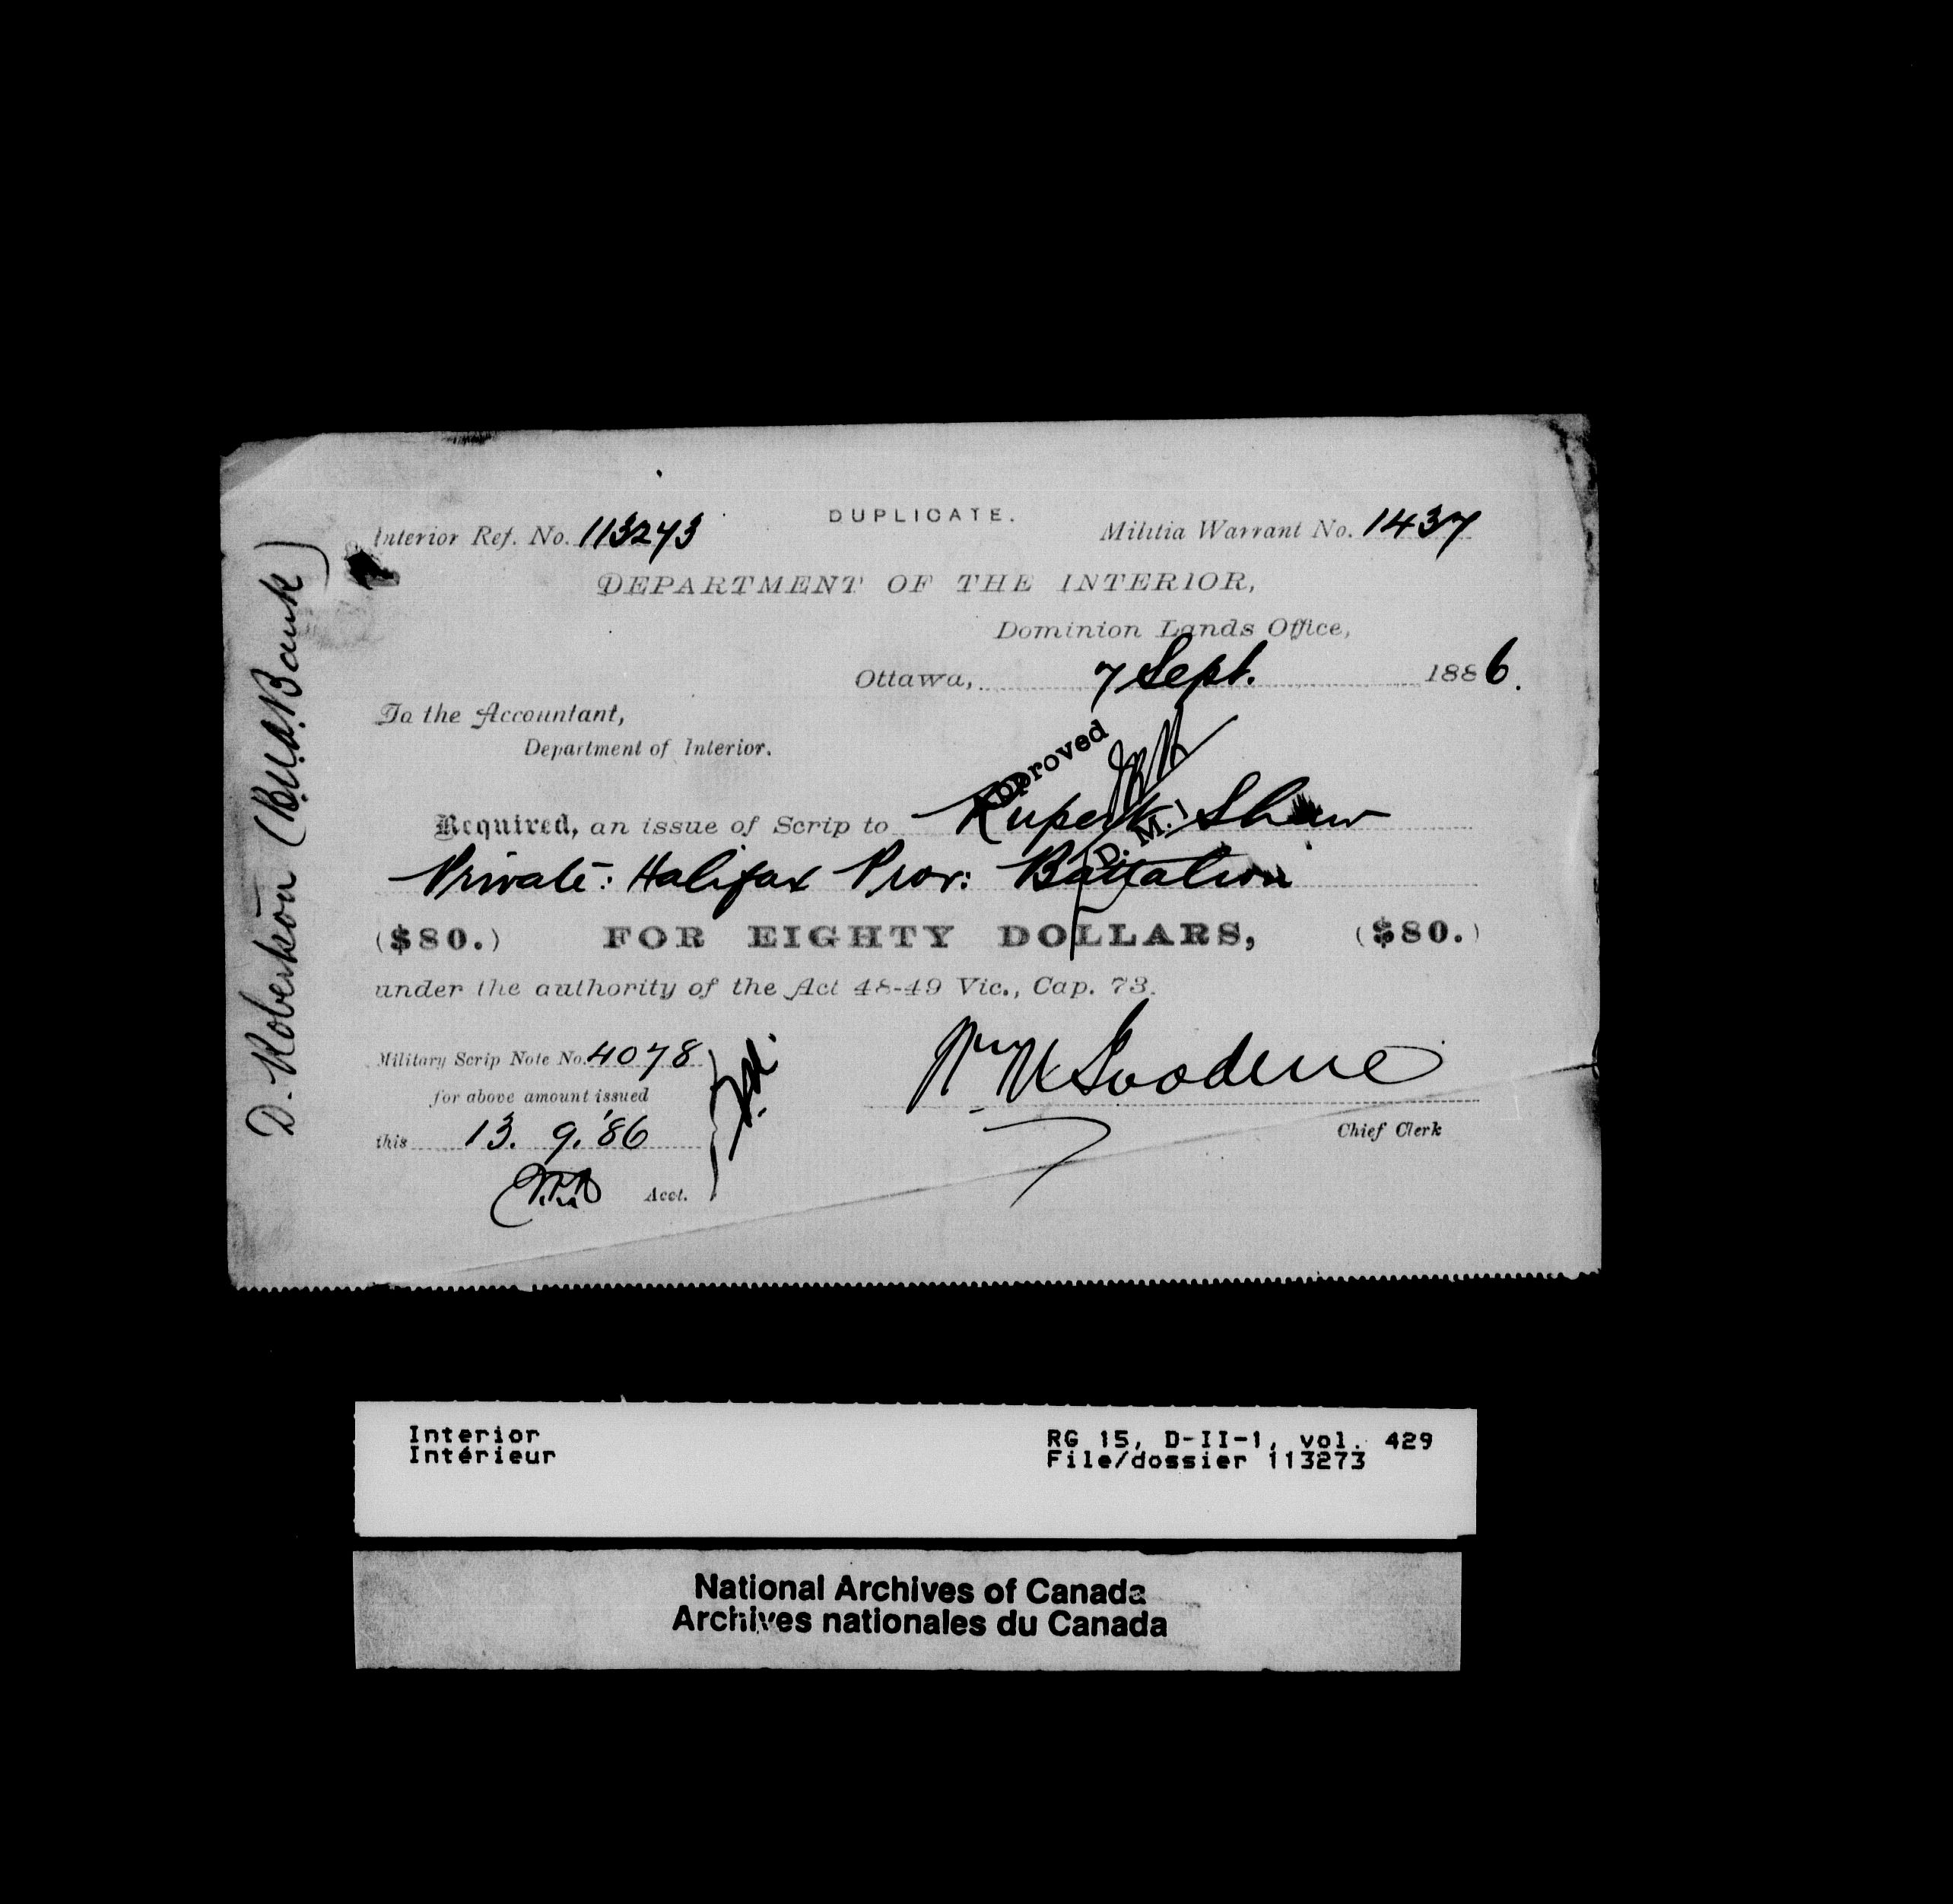 DUPLICATE.
Interior Ref. No. 113273
Militia Warrant No. 1437
DEPARTMENT OF THE INTERIOR,
Dominion Lands Office,
Ottawa, 7 Sept. 1886.
To the Accountant,
Department of Interior.
Approved
Required, an issue of Scrip to Rupert Shaw
(D. M.)
Private: Halifax Prov: Battalion
($80.) FOR EIGHTY DOLLARS, ($80.)
under the authority of the Act 48-49 Vic., Cap. 73.
Military Scrip Note No. 4078
for above amount issued
this 13. 9. '86
Acct.
Chief Clerk
D. Robertson (B.N.A. Bank)
Interior
Intérieur
RG 15, D-II-1, vol. 429
File/dossier 113273
National Archives of Canada
Archives nationales du Canada